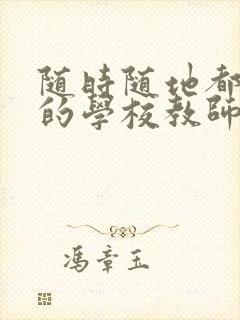 随時随地都
的學校教師
馮章玉